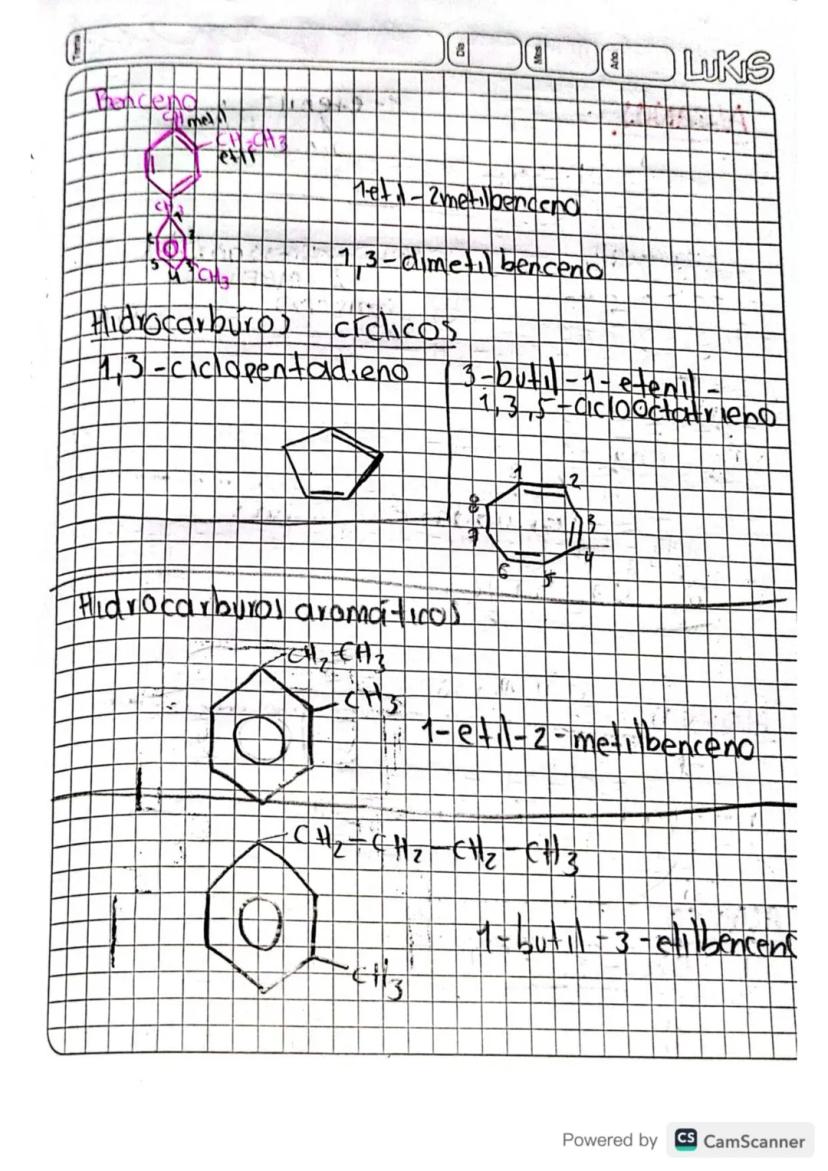 Tema
Día
Mes
Año
LUKIS
Benceno
metil
CH2CH3
etil
1etil-2metilbenceno
CH3
1
2
3
4
5
CH3
1,3-dimetilbenceno
Hidrocarburos cíclicos
1,3-ciclopentadieno
3-butil-1-etenil-
1,3,5-ciclooctatrieno
1
2
3
4
5
6
7
8
Hidrocarburos aromáticos
CH2-CH3
CH3
1-etil-2-metilbenceno
CH2-CH2-CH2-CH3
1-butil-3-etilbenceno
CH3
Powered by CS CamScanner